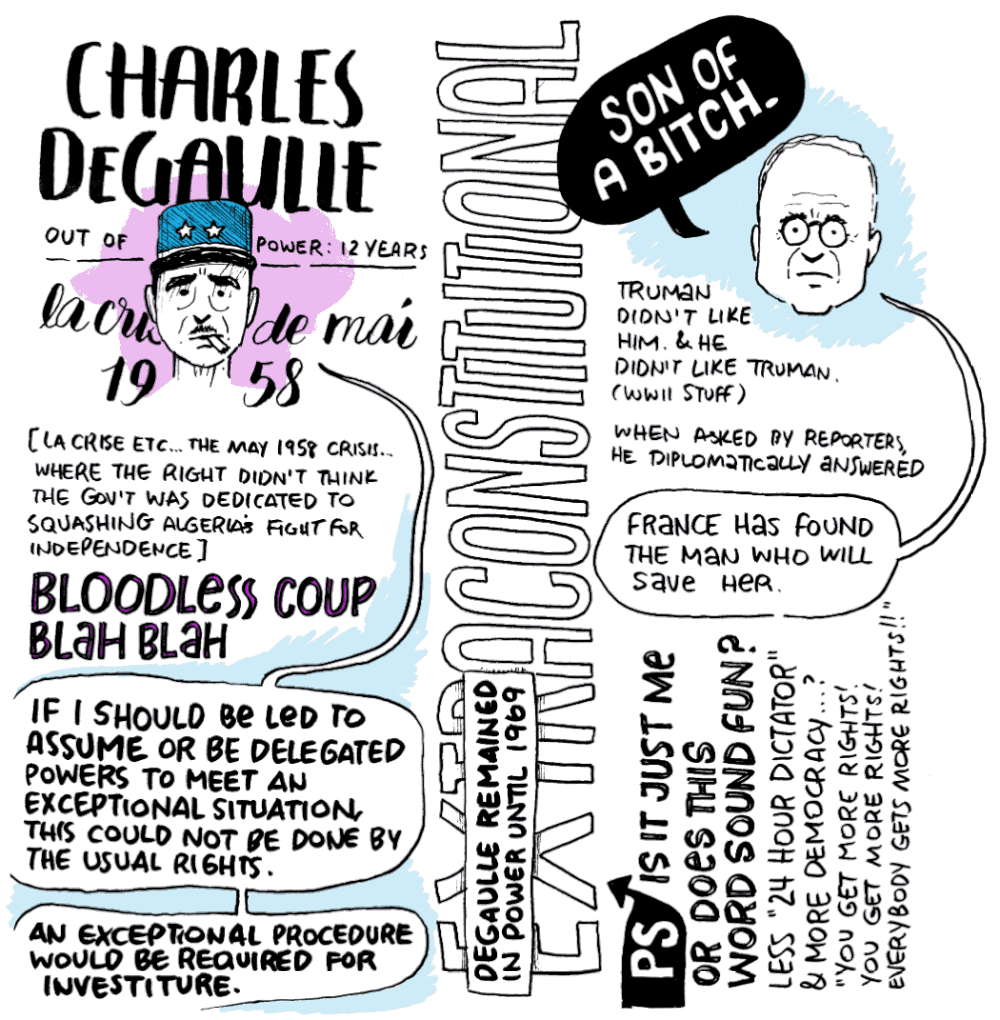 CHARLES
DeGAULLE
OUT OF POWER: 12 YEARS
la cris de mai
1958
[LA CRISE ETC... THE MAY 1958 CRISIS...
WHERE THE RIGHT DIDN'T THINK
THE GOV'T WAS DEDICATED TO
SQUASHING ALGERIA'S FIGHT FOR
INDEPENDENCE]
BLOODLESS COUP
BLAH BLAH
IF I SHOULD BE LED TO
ASSUME OR BE DELEGATED
POWERS TO MEET AN
EXCEPTIONAL SITUATION,
THIS COULD NOT BE DONE BY
THE USUAL RIGHTS.
AN EXCEPTIONAL PROCEDURE
WOULD BE REQUIRED FOR
INVESTITURE.
EXTRACONSTITUTIONAL
DEGAULLE REMAINED
IN POWER UNTIL 1969
SON OF
A BITCH.
TRUMAN
DIDN'T LIKE
HIM. & HE
DIDN'T LIKE TRUMAN.
(WWII STUFF)
WHEN ASKED BY REPORTERS,
HE DIPLOMATICALLY ANSWERED
FRANCE HAS FOUND
THE MAN WHO WILL
SAVE HER.
PS IS IT JUST ME
OR DOES THIS
WORD SOUND FUN?
LESS "24 HOUR DICTATOR"
& MORE DEMOCRACY...?
"YOU GET MORE RIGHTS!
YOU GET MORE RIGHTS!
EVERYBODY GETS MORE RIGHTS!!"